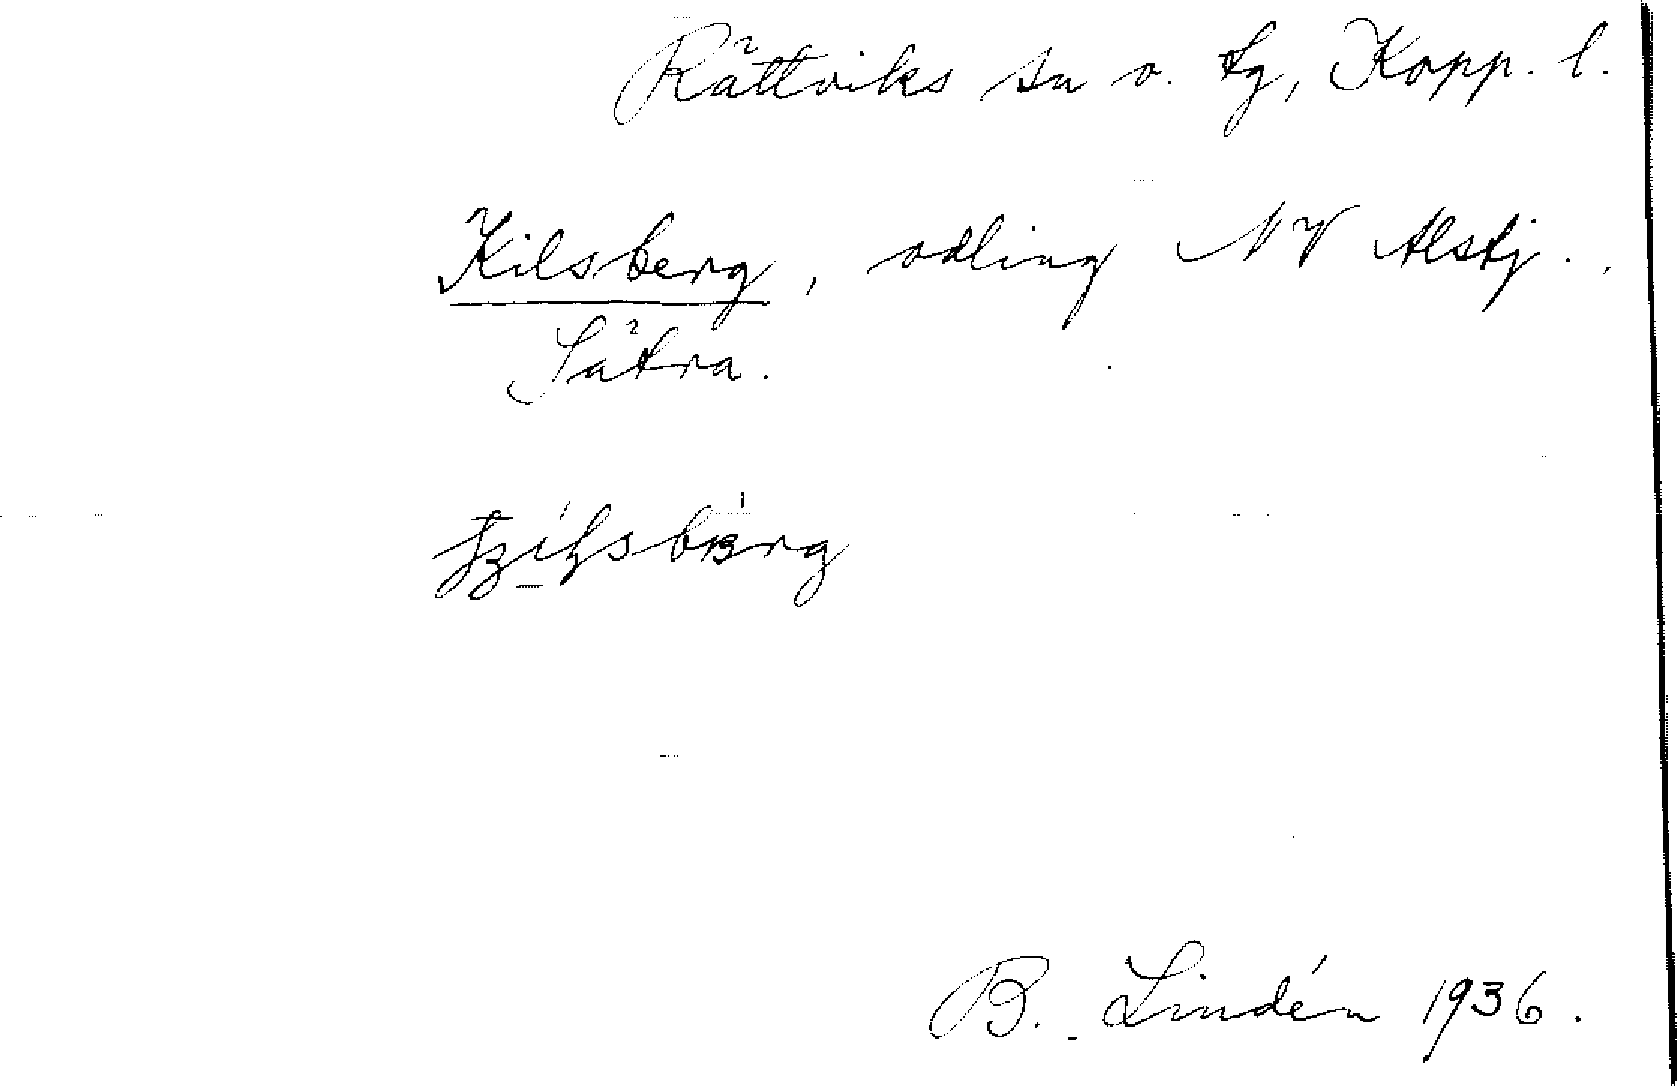 Rättviks sn o. tg, Kopp. l.
Kilsberg, odling NV Alstj.
Sätra.
B. Lindén 1936.